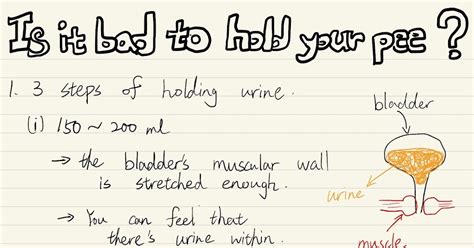 Is it bad to hold your pee?
1. 3 steps of holding urine.
(i) 150 ~ 200 ml
→ the bladder's muscular wall
is stretched enough.
→ You can feel that
there's urine within.
bladder
urine
muscle